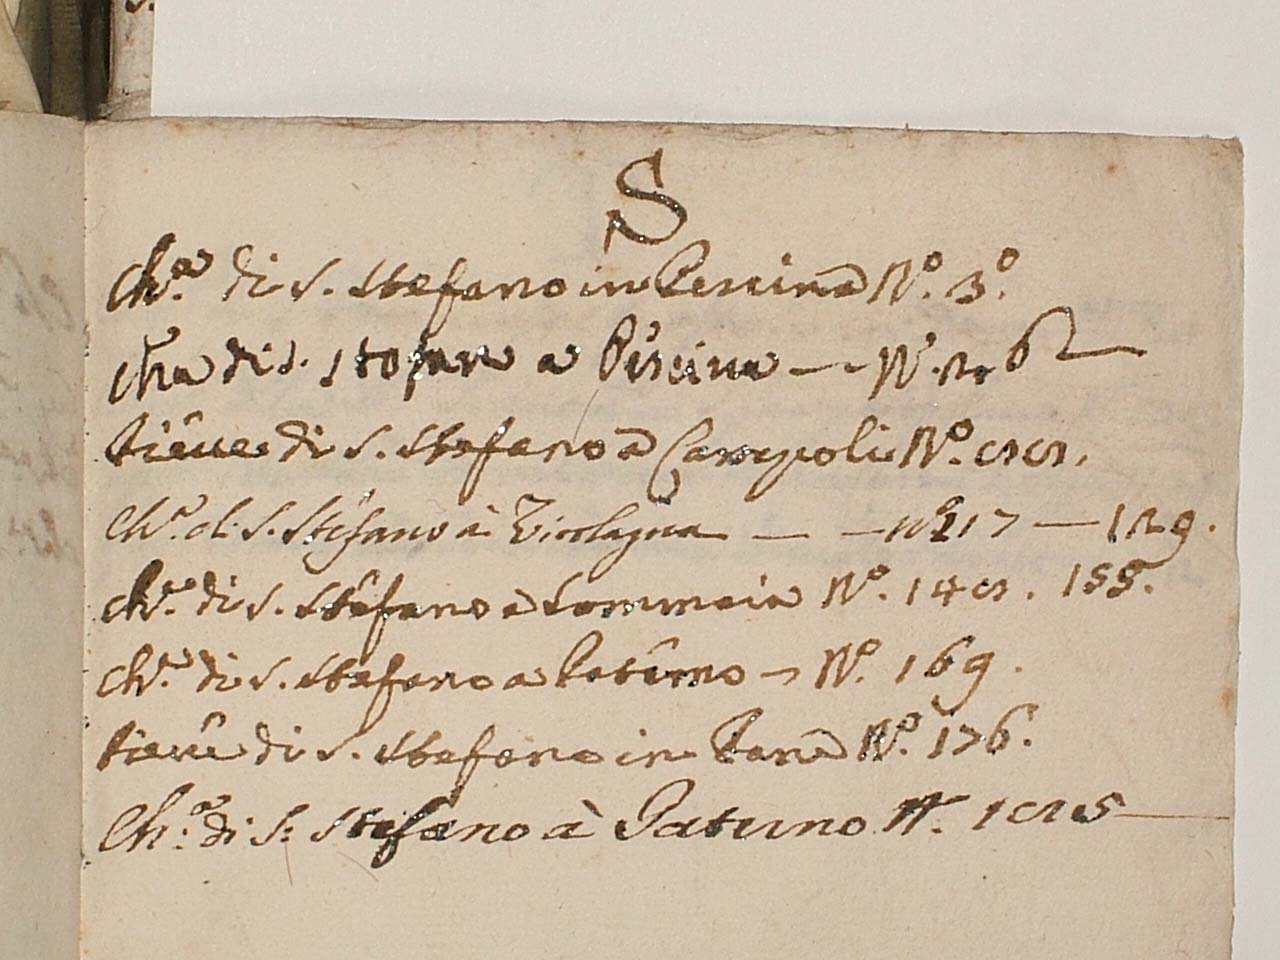 S
Ch.ª di S. Stefano in Pescina Nº. 3º.
Chã di S. Stefano a Piscina — N. 26
Pieve di S. Stefano à Campoli Nº.
Ch.ª di S. Stefano à Ticolagna — — nº 117 — 129.
Ch.ª di S. Stefano à Sommaia Nº. 155.
Ch.ª di S. Stefano a Paterno — Nº. 169.
Pieve di S. Stefano in Pane Nº. 176.
Ch.ª di S: Stefano à Paterno N.